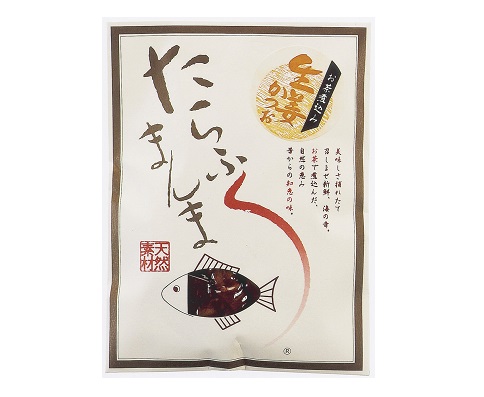 お茶煮込み
生姜
かつお
たらふく
まんま
美味しさ獲れたて
召しませ新鮮、海の幸。
お茶で煮込んだ、
自然の恵み
昔からの知恵の味。
天然
素材
®